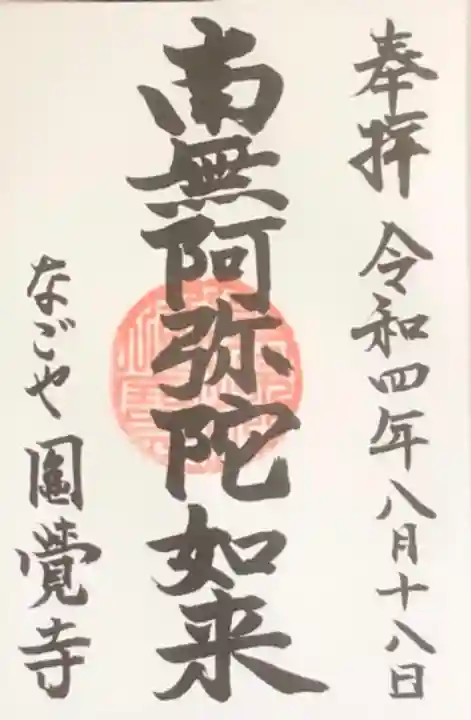 奉拝 令和四年八月十八日
南無阿弥陀如来
なごや 圓覺寺